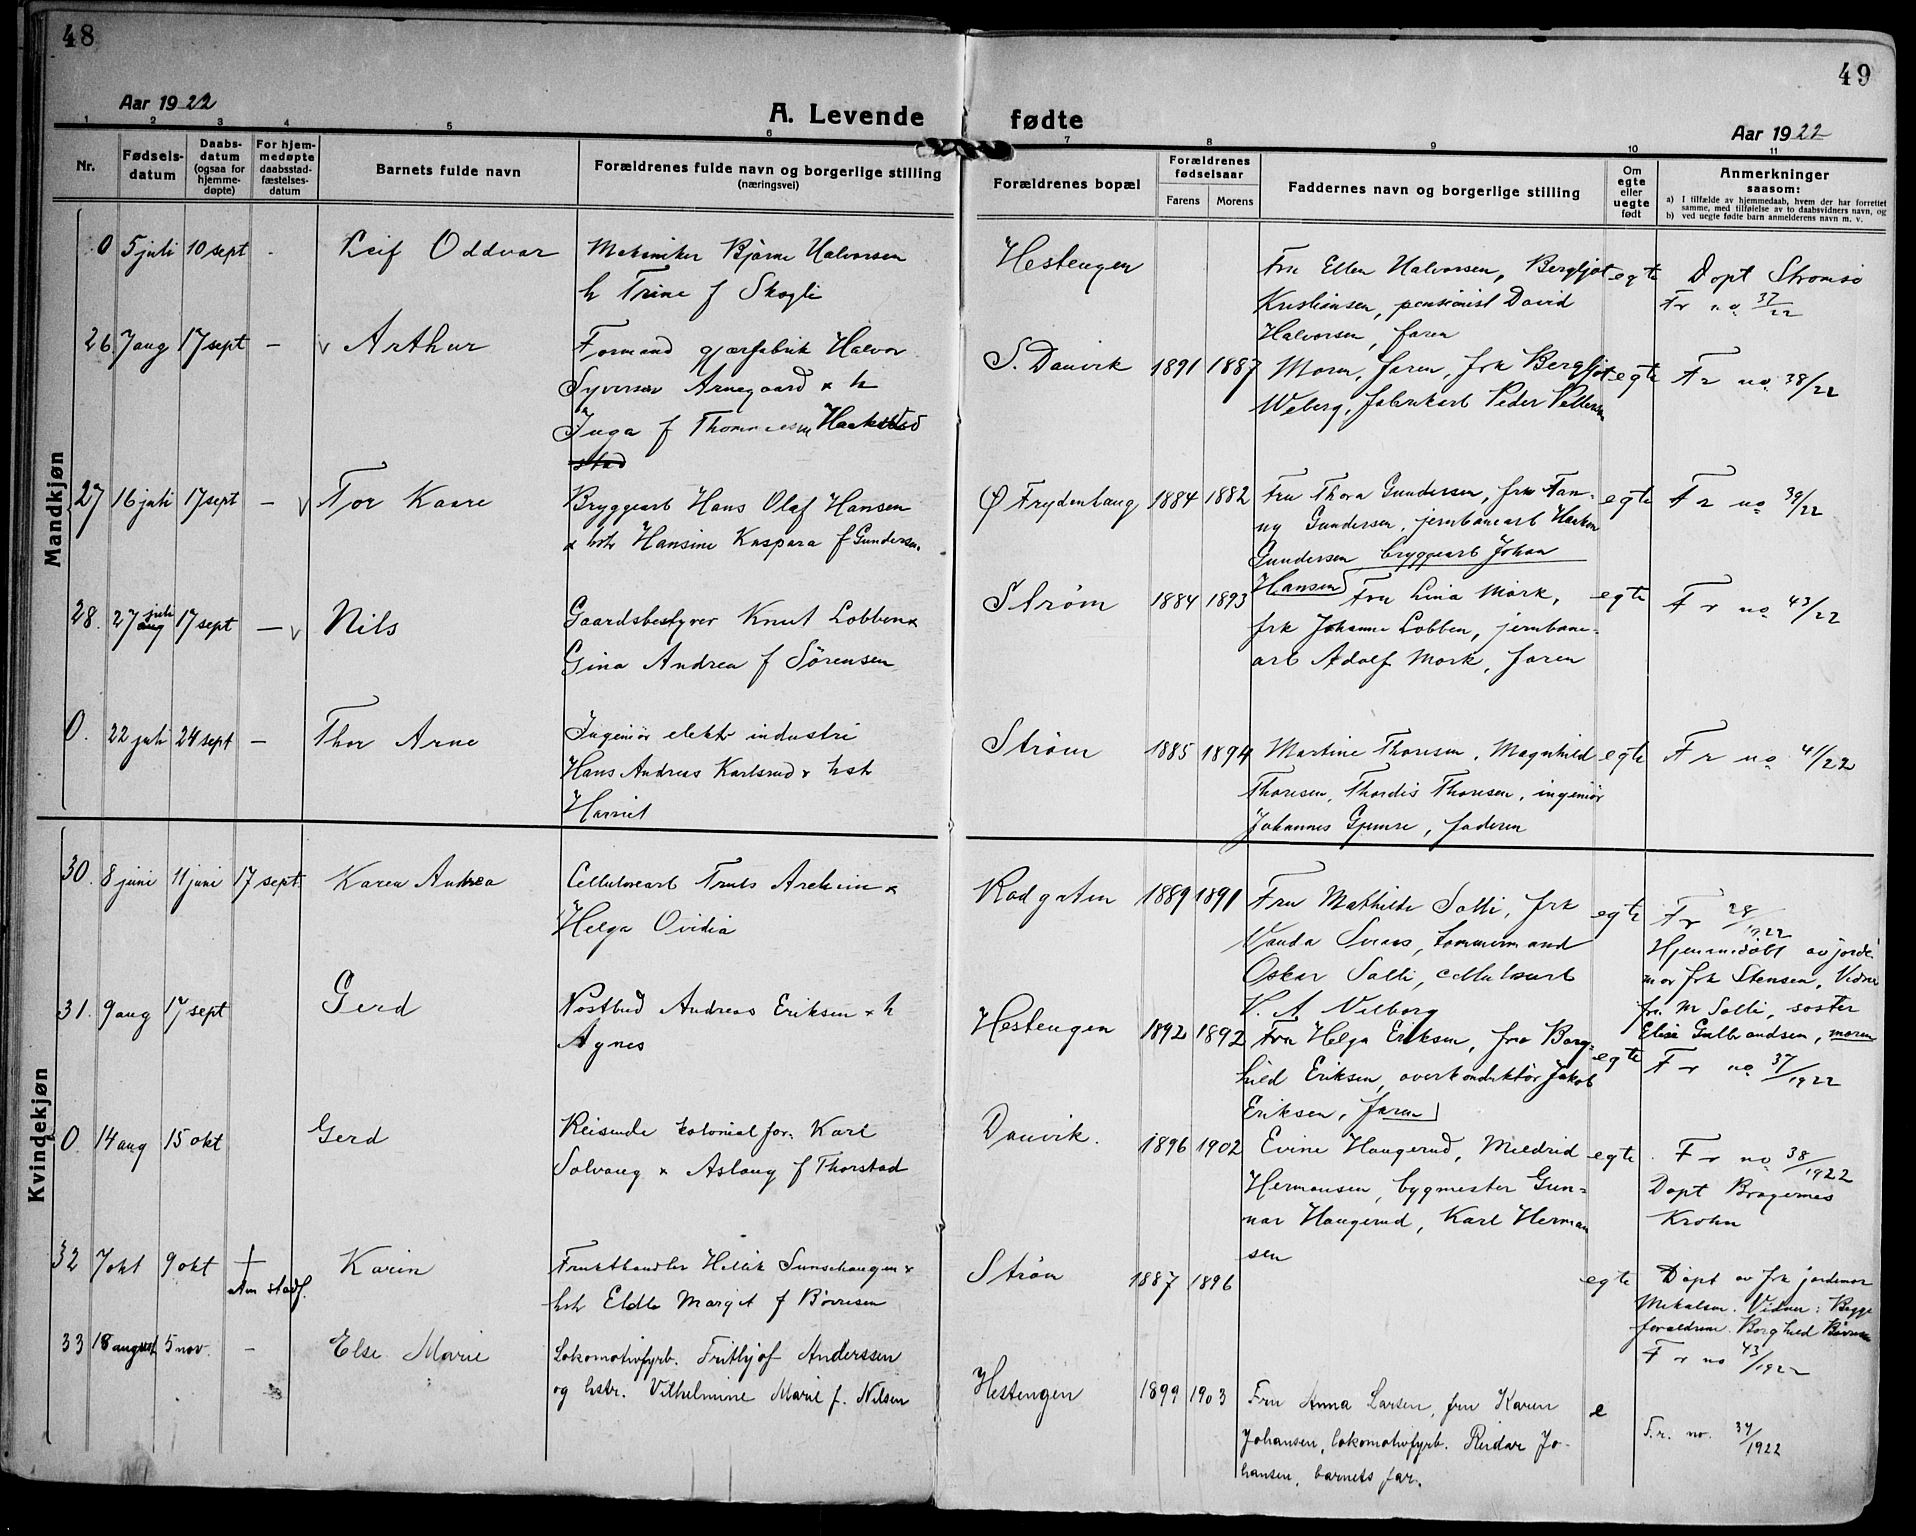 48
49
Aar 1922
A. Levende fødte
Aar 1922
1 2 3 4 5 6 7 8 9 10 11
Nr.
Fødsels-
datum
Daabs-
datum
(ogsaa for
hjemme-
døpte)
For hjem-
medøpte
daabsstad-
fæstelses-
datum
Barnets fulde navn
Forældrenes fulde navn og borgerlige stilling
(næringsvei)
Forældrenes bopæl
Forældrenes
fødselsaar
Farens Morens
Faddernes navn og borgerlige stilling
Om
egte
eller
uegte
født
Anmerkninger
saasom:
a) I tilfælde av hjemmedaab, hvem der har forrettet
samme, med tilføielse av to daabsvidners navn, og
b) ved uegte fødte barn anmelderens navn m. v.
Mandkjøn
0 5 juli 10 sept - Leif Oddvar
Mekaniker Bjarne Halvorsen
h Trine f Skogli
Hestengen
Fru Ellen Halvorsen, Bergljot
Kristiansen, pensionist David
Halvorsen, faren
egte
Døpt Strømsø
Fr no 37/22
26. 7 aug 17 sept - v Arthur
Formand gjærfabrik Halvor
Syversen Arnegaard x h
Inga f Thommesen Haakestad
stad
S. Danvik 1891 1887
Moren, faren, frk Bergljot
Weberg, fabrikarb Peder Pettersen
egte
Fr no. 38/22
27 16 juli 17 sept - v Tor Kaare
Bryggearb Hans Olaf Hansen
x hstr Hansine Kaspara f Gundersen.
Ø Frydenhaug 1884 1882
Fru Thora Gundersen, frk Fan-
ny Gundersen, jernbanearb Haakon
Gundersen bryggearb Johan
Hansen
egte
Fr no 39/22
28. 27 juli aug 17 sept - v Nils
Gaardsbestyrer Knut Lobben x
Gina Andrea f Sørensen
Strøm 1884 1893
Fru Lina Mork,
frk Johanne Lobben, jernbane-
arb Adolf Mork, faren
egte
Fr no 43/22
0. 22 juli 24 sept - Thor Arne
Ingeniør elektr industri
Hans Andreas Karlsrud x hstr
Harriet
Strøm 1885 1894
Martine Thoresen, Magnhild
Thoresen, Thordis Thoresen, ingeniør
Johannes Gjemre, faderen
egte
Fr no 41/22
Kvindekjøn
30. 8 juni 11 juni 17 sept. Karen Andrea
Cellulosearb Truls x
Helga Ovidia
Rodgaten 1889 1891
Fru Mathilde Solli, frk
Vanda, tømmermand
Oskar Solli, cellulosearb
V. A Vilberg
egte
Fr 28/1922
Hjemmedøbt av jorde-
mor frk Stensen, Vidne
fru M Solli, søster
Elise Gulbrandsen, moren
31. 9 aug 17 sept Gerd
Postbud Andreas Eriksen x h
Agnes
Hestengen 1892 1892
Fru Helga Eriksen, fru Borg-
hild Eriksen, overkonduktør Jakob
Eriksen, faren
egte
Fr no 37/1922
0. 14 aug 15 okt Gerd
Reisende kolonial for. Karl
Solvang x Aslaug f Thorstad
Danvik. 1896 1902
Evine Haugerud, Mildrid
Hermansen, bygmester Gun-
nar Haugerud, Karl Herman
sen
egte
Fr no 38/1922
Døpt Bragernes
Krohn
32 7 okt 9 okt † Karin
Frukthandler x
hstr Margit f Børresen
Strøm 1887 1896
egte
Døpt av frk jordemor
Mikalsen. Vidner: Begge
forældrene. Borghild Børresen
Fr no 43/1922
33 18 august 5 nov. - Else Marie
Lokomotivfyrb. Frithjof Anderssen
og hstr. Vilhelmine Marie f. Nilsen
Hestengen 1899 1903
Fru Anna Larsen, fru Karen
Johansen, lokomotivfyrb. Reidar Jo-
hansen, barnets far.
e
F.r. no. 34/1922